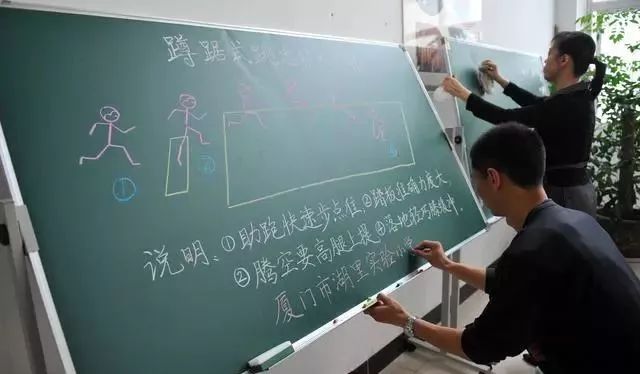 蹲踞式跳远
① ②
说明:①助跑快速步点准,②踏板准确力度大,
③腾空要高腿上提④落地轻巧膝缓冲.
厦门市湖里实验小